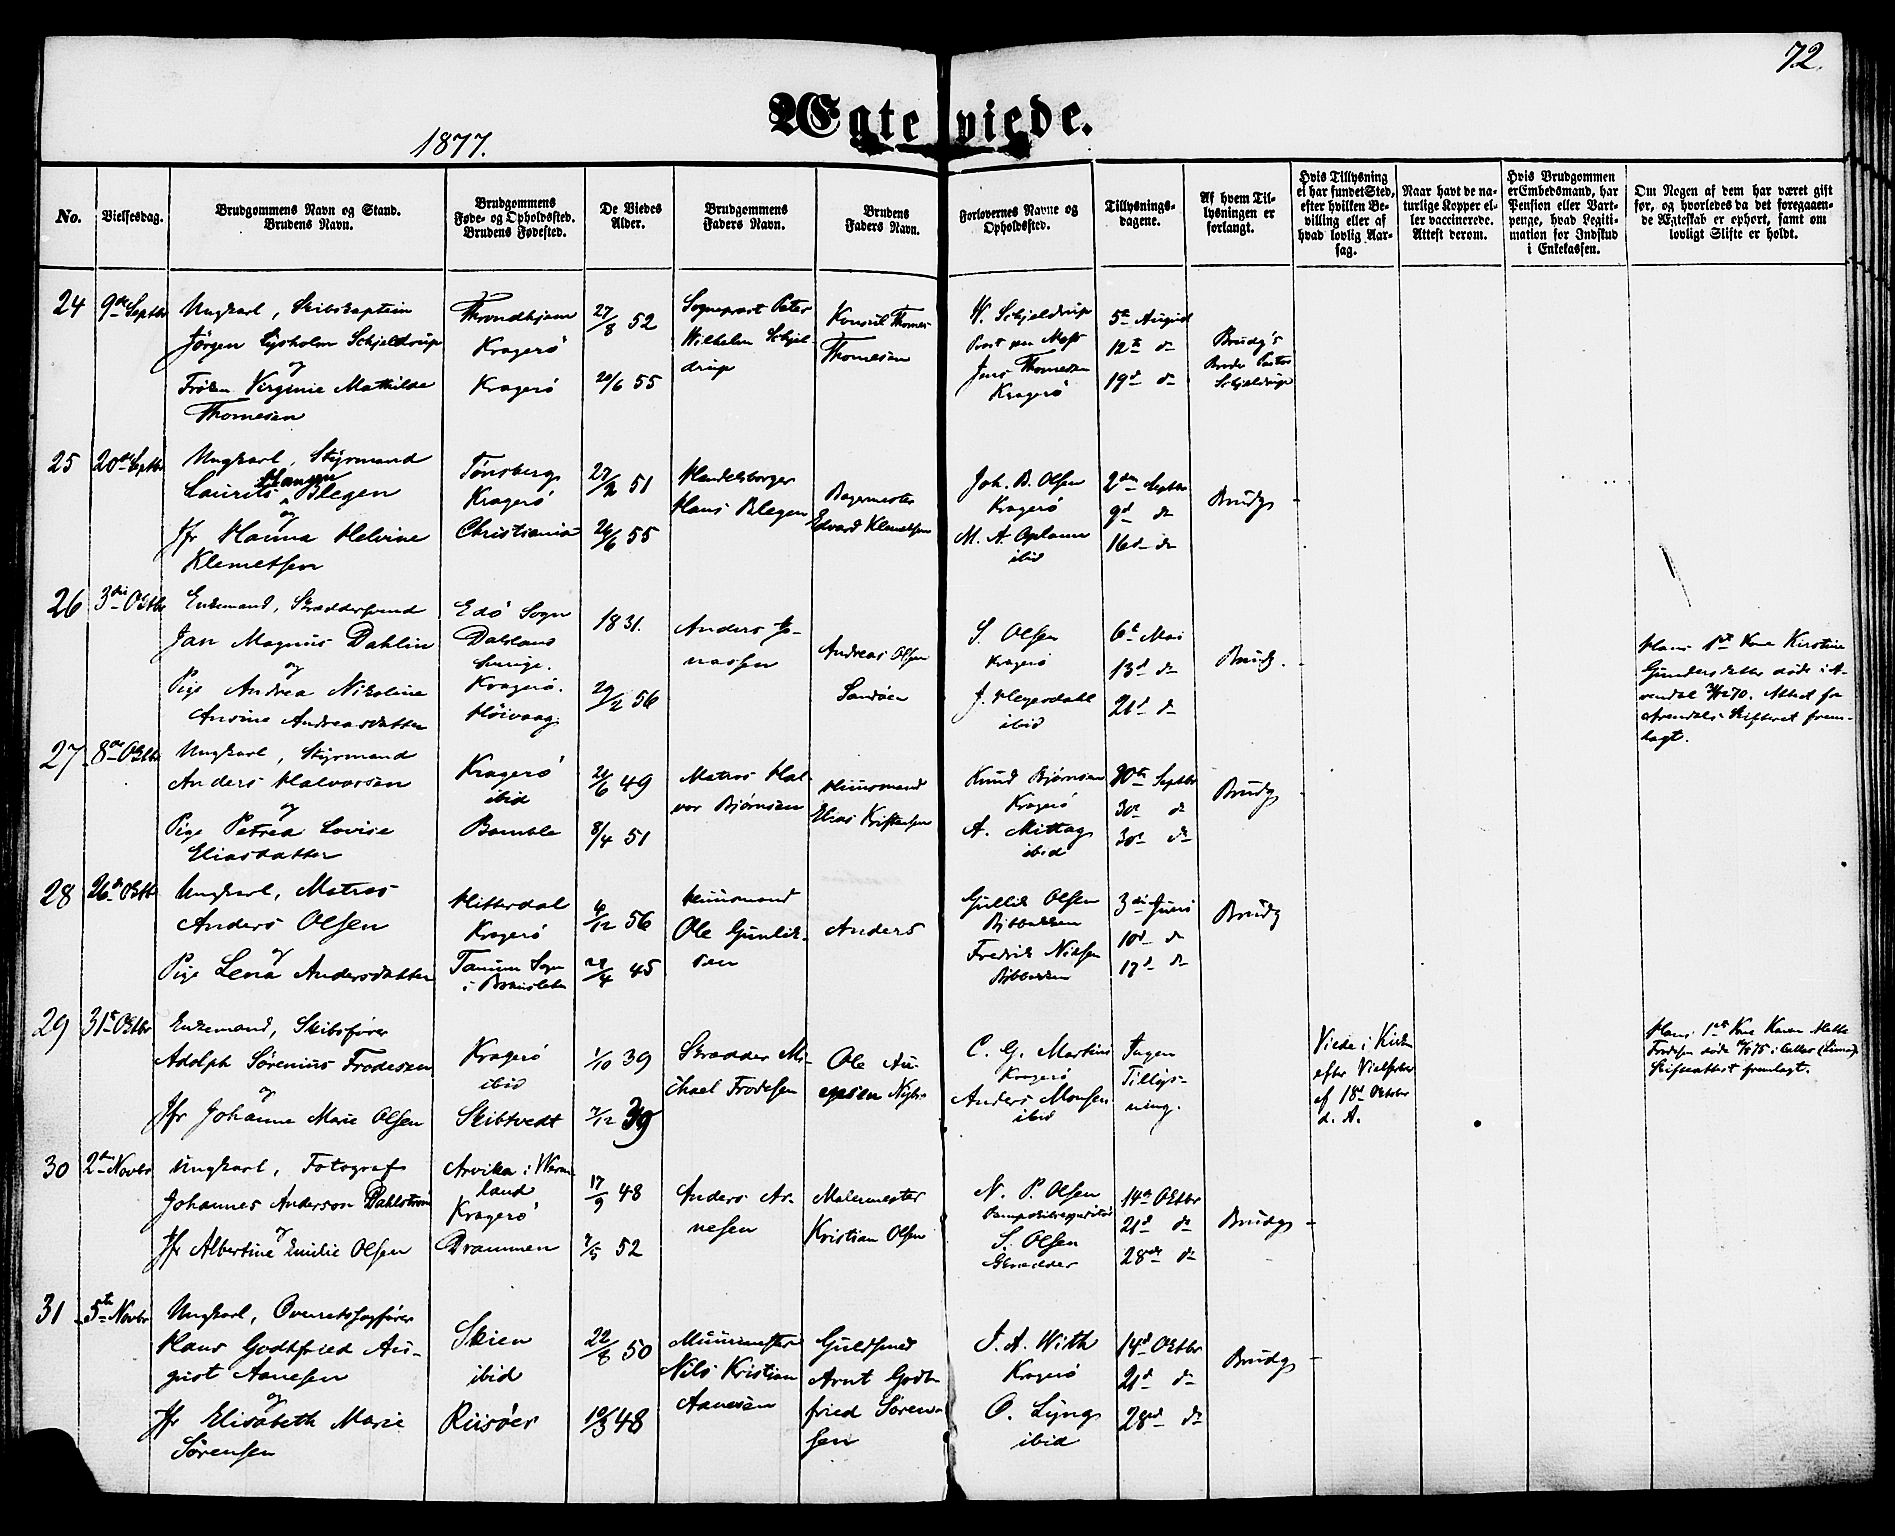 72.
Ægteviede.
1877.
No.
Vielsesdag.
Brudgommens Navn og Stand.
Brudens Navn.
Brudgommens
Føde- og Opholdssted.
Brudens Fødested.
De Viedes
Alder.
Brudgommens
Faders Navn.
Brudens
Faders Navn.
Forlovernes Navne og
Opholdssted.
Tillysnings-
dagene.
Af hvem Til-
lysningen er
forlangt.
Hvis Tillysning
ei har fundet Sted,
efter hvilken Be-
villing eller af
hvad lovlig Aar-
sag.
Naar havt de na-
turlige Kopper el-
ler vaccinerede.
Attest derom.
Hvis Brudgommen
er Embedsmand, har
Pension eller Vart-
penge, hvad Legiti-
mation for Indskud
i Enkekassen.
Om Nogen af dem har været gift
før, og hvorledes da det foregaaen-
de Ægteskab er ophørt, samt om
lovligt Skifte er holdt.
24
9de Septbr
Ungkarl, Skibskaptein
Jörgen Lysholm Schjeldrup
og
Frøken Virginie Mathilde
Thomesen
Throndhjem
Kragerö
Kragerö
27/8 52
20/6 55
Sogneprest Peter
Wilhelm Schjel-
drup
Konsul Thomes
Thomesen
W. Schjeldrup
Jens Thomesen
Kragerö
5te August
12te d
19d d
Brudg's
Broder Pastor
Schjeldrup
25
20de Septbr
Ungkarl, Styrmand
Stangen
Laurits Blegen
og
Jfr Hanna Helvine
Klemetsen
Tönsberg
Kragerö
Christiania
27/2 51
24/6 55
Handelsborger
Hans Blegen
Bagermester
Edvard Klemetsen
Joh. B. Olsen
Kragerö
M. A. Oplann
ibid
2den Septbr
9d d
16d d
Brudg
26
3die Oktbr
Enkemand, Skræddersvend
Jan Magnus Dahlin
og
Pige Andrea Nikoline
Ansine Andreasdatter
Edö Sogn
Dalsland
Sverige.
Kragerö.
Höivaag
1831.
29/2 56
Anders Jo-
nassen
Andreas Olsen
Sandöen
S. Olsen
Kragerö
J. Heyerdahl
ibid
6d Mai
13d d
21d d
Brudg.
Hans 1ste Kone Kirstine
Gundersdatter døde i A-
rendal 70. Attest fra
Arendals Skifteret frem-
lagt.
27
8de Oktbr
Ungkarl, Styrmand
Anders Halvorsen
og
Pige Petrea Lovise
Eliasdatter
Kragerö
ibid
Bamble
21/6 49
8/4 51
Matros Hal-
vor Björnsen
Huusmand
Elias Kristensen
Knud Björnsen
Kragerö
A. Mittag
ibid
30te Septbr
30d d
30d d
Brudg
28
26d Oktbr
Ungkarl, Matros
Anders Olsen
og
Pige Lena Andersdatter
Hitterdal
Kragerö
Tanum Sogn
i Bohuslehn
6/12 56
28/4 45
Huusmand
Ole Gunlik-
sen
Anders
Gullik Olsen
Fredrik Nielsen
3die Juni
10d d
17d d
Brudg
29
31te Oktbr
Enkemand, Skibsfører
Adolph Sörenius Frodesen
og
Jfr Johanne Marie Olsen
Kragerö
ibid
Skibtvedt
1/10 39
7/12 39
Skrædder Mi-
chael Frodesen
Ole Au-
C. G. Martins
Kragerö
Anders Monsen
ibid
Ingen
Tillys-
ning.
Viede i Kirken
efter Vielsesbr
af 18d Oktbr
d. A.
Hans 1ste Kone Karen Mette
Frodesen døde 75 i Callao (Lima).
Skifteattest fremlagt.
30
2den Novbr
Ungkarl, Fotograf
Johannes Anderson Dahlström
og
Jfr Albertine Emilie Olsen
Arvika i Werm-
land
Kragerö
Drammen
17/9 48
7/5 52
Anders Ar-
nesen
Malermester
Kristian Olsen
N. P. Olsen
S. Olsen
Skrædder
14de Oktbr
21d d
28de d
Brudg
31
5te Novbr
Ungkarl, Overretssagfører
Hans Godtfried Au-
gust Aanesen
og
Jfr Elisabeth Marie
Sörensen
Skien
ibid
Riisöer
22/8 50
10/3 48
Muurmester
Nils Kristian
Aanesen
Guldsmed
Arnt Godt-
fried Sören-
sen
J. A. With
Kragerö
O. Lyng
ibid
14d Oktbr
21d d
28d d
Brudg